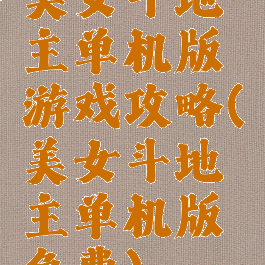 美女斗地
主单机版
游戏攻略(
美女斗地
主单机版
免费)